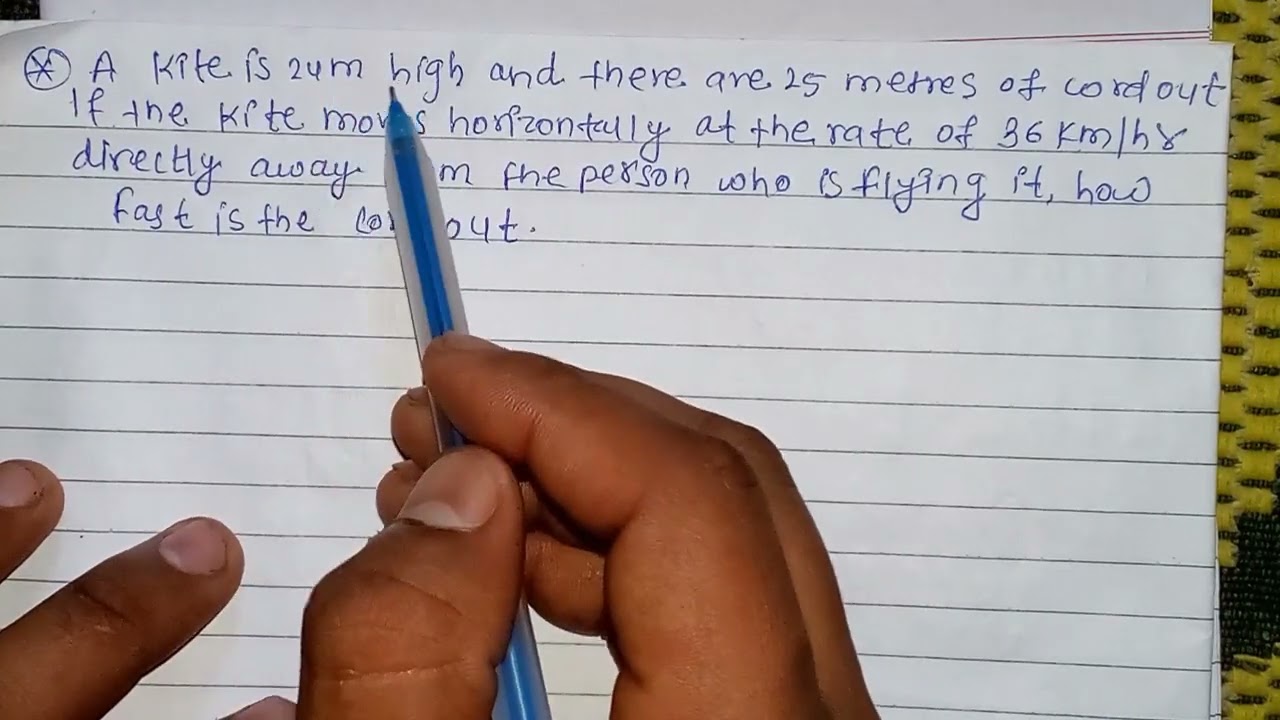 A Kite is 24m high and there are 25 metres of cord out
If the Kite moves horizontally at the rate of 36 Km/hr
directly away the person who is flying it, how
fast is the out.